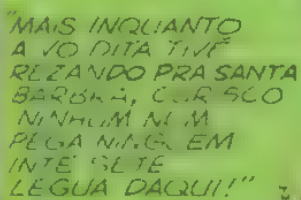 "MAIS INQUANTO
A VO DITA TIVÉ
REZANDO PRA SANTA
BARBRA, CORISCO
NINHUM NUM
PEGA NINGUEM
INTÉ SETE
LÉGUA DAQUI!"